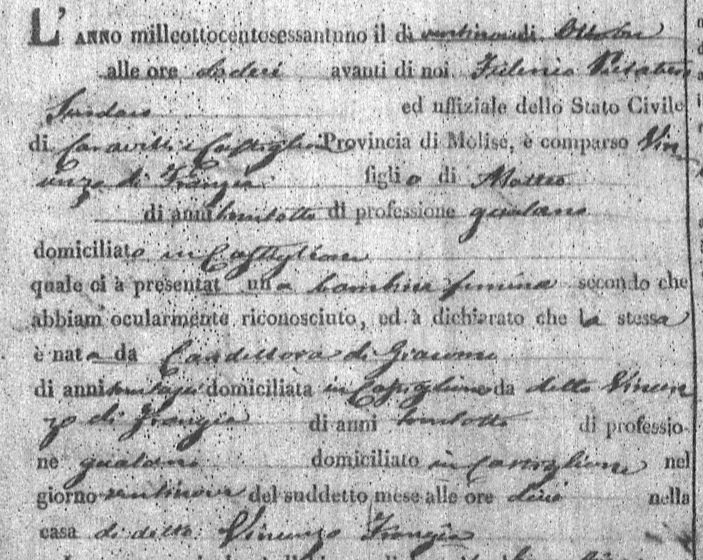 L'ANNO milleottocentosessantuno il di ventinove di Ottobre
alle ore dodeci avanti di noi
Sindaco ed uffiziale dello Stato Civile
di Carovilli e Castiglione Provincia di Molise, è comparso Vin
cenzo di Frangia figlio di Matteo
di anni trentotto di professione gualano
domiciliato in Castiglione
quale ci à presentat una bambina femina secondo che
abbiam ocularmente riconosciuto, ed à dichiarato che la stessa
è nata da Candelora di Giacomo
di anni domiciliata in Castiglione da detto Vincen
zo di Frangia di anni trentotto di professio-
ne gualano domiciliato in Castiglione nel
giorno ventinove del suddetto mese alle ore dieci nella
casa di detto Vincenzo Frangia